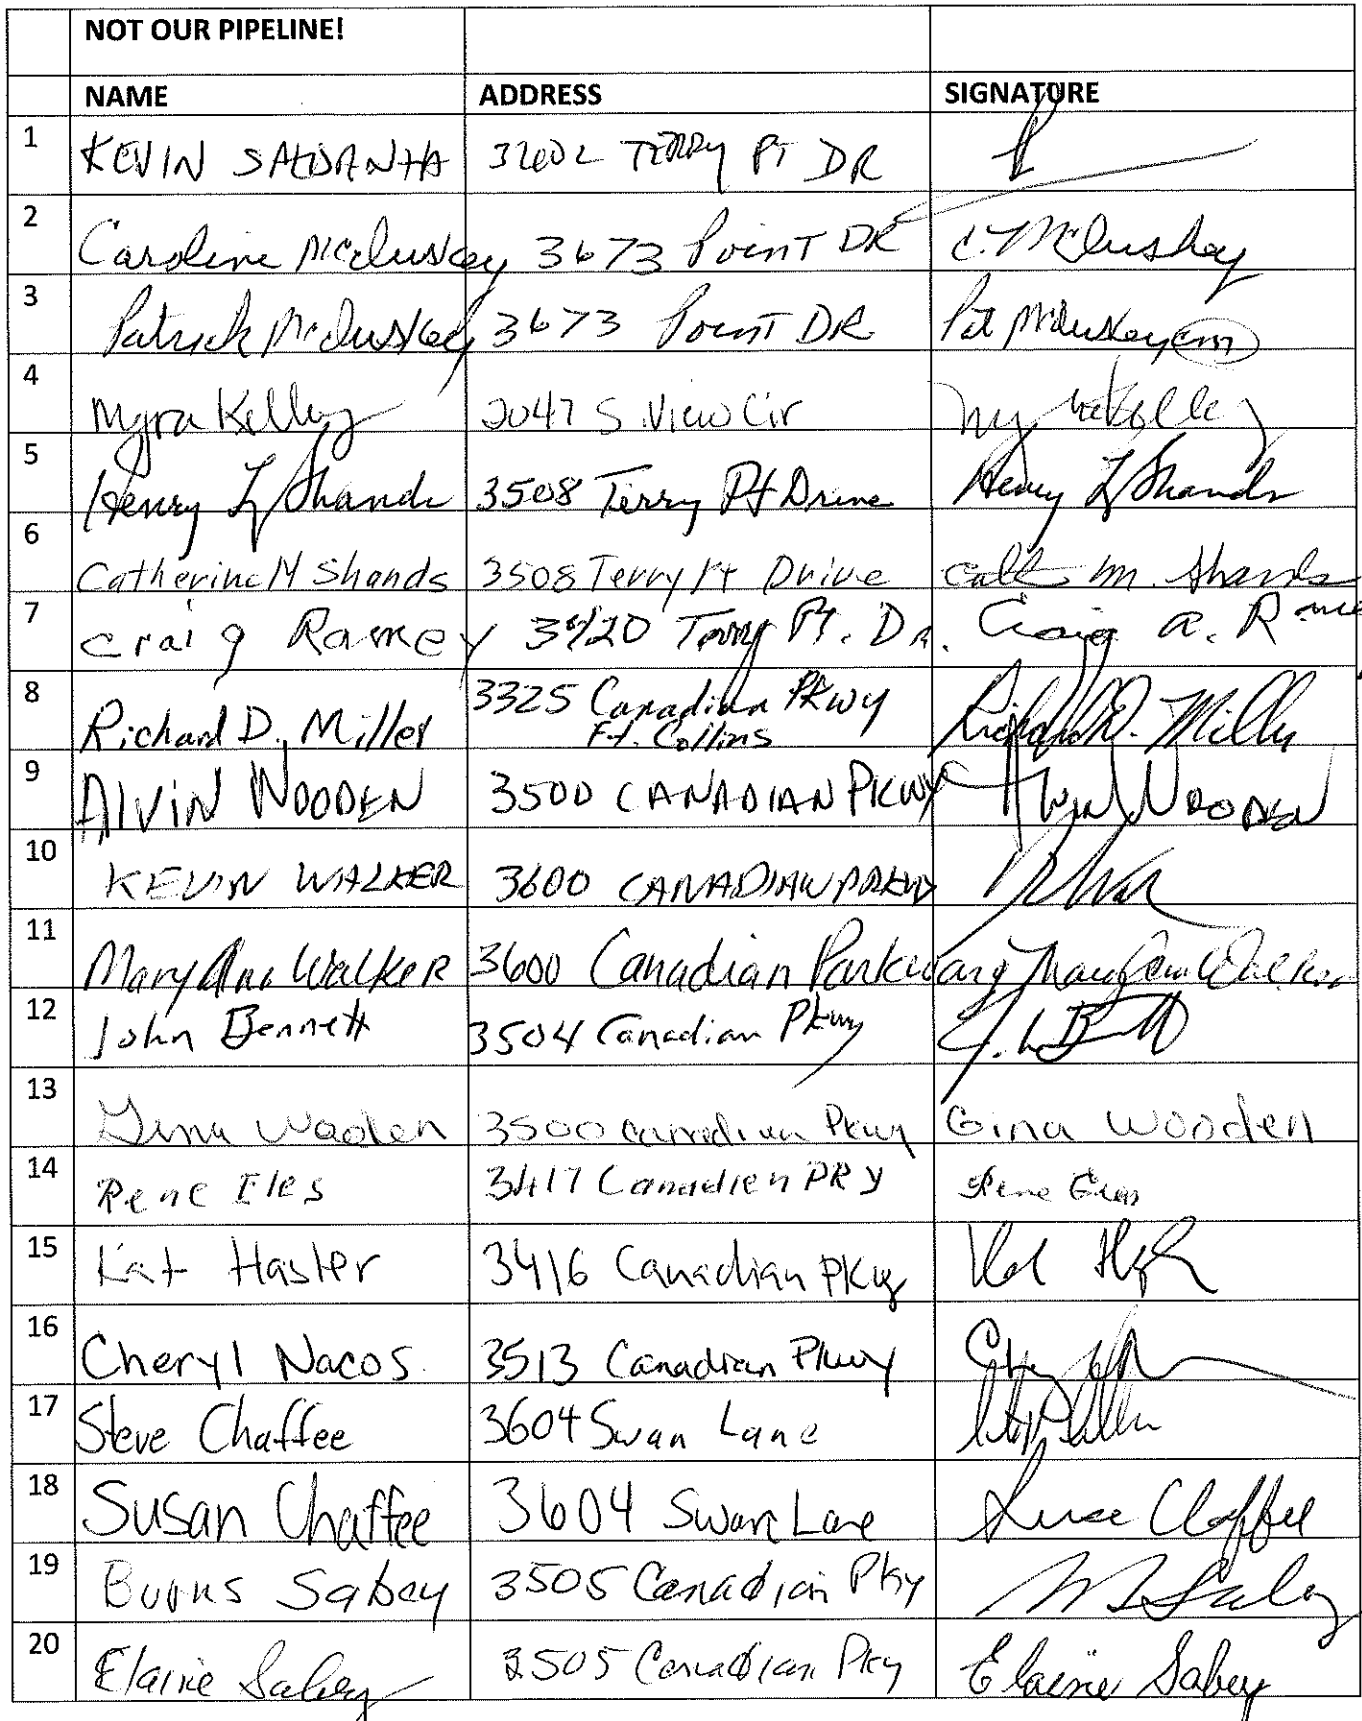 NOT OUR PIPELINE!
NAME ADDRESS SIGNATURE
1 KEVIN SALDANHA 3602 TERRY PT DR
2 Caroline McCluskey 3673 Point DR C. McCluskey
3 Patrick McCluskey 3673 Point DR Pat McCluskey cm
4 Myra Kelley 2047 S. View Cir Myra Kelley
5 Henry L Shands 3508 Terry Pt Drive Henry L Shands
6 Catherine M Shands 3508 Terry Pt Drive Cath M. Shands
7 Craig Ramey 3420 Terry Pt. Dr. Craig A. Ramey
8 Richard D. Miller 3325 Canadian Pkwy Richard D. Miller
Ft. Collins
9 AlVIN WOODEN 3500 CANADIAN PKWY Alvin WOODEN
10 KEVIN WALKER 3600 CANADIAN PRKWY
11 Mary Ann Walker 3600 Canadian Parkway Mary Ann Walker
12 John Bennett 3504 Canadian Pkwy
13 Gina Wooden 3500 Canadian Pkwy Gina Wooden
14 Rene Eles 3417 Canadien PRY Rene
15 Kat Hasler 3416 Canadian PKwy
16 Cheryl Nacos. 3513 Canadian Pkwy
17 Steve Chaffee 3604 Swan Lane
18 Susan Chaffee 3604 Swan Lane Chaffee
19 Burns Sabey 3505 Canadian Pky Sabey
20 Elaine Sabey 3505 Canadian Pky Elaine Sabey